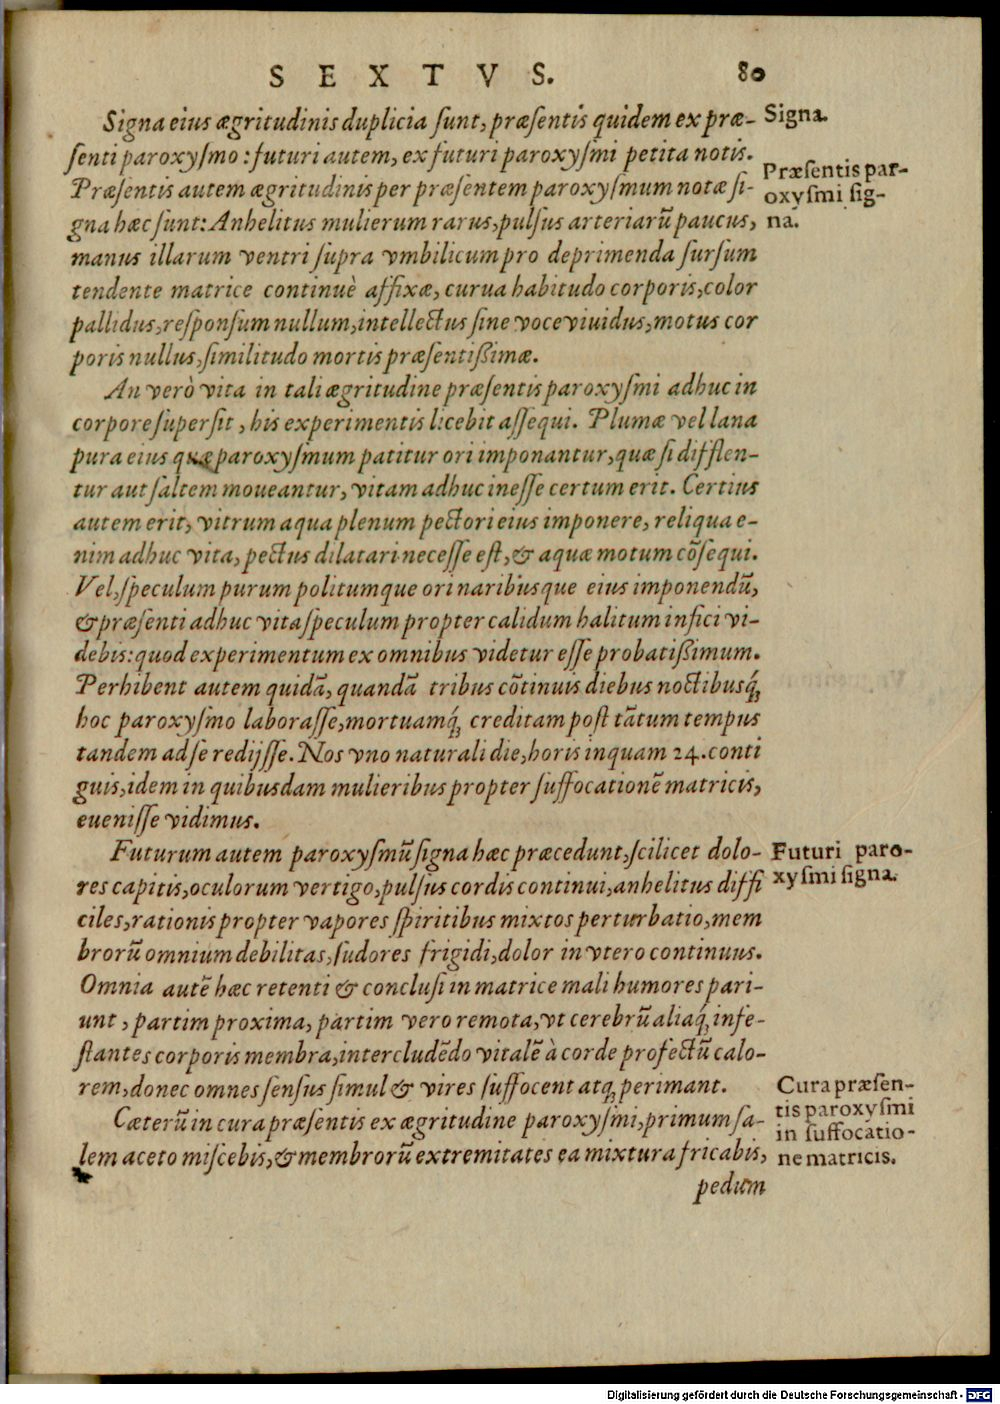 SEXTVS. 80
Signa eius ægritudinis duplicia ſunt, præſentis quidem ex præ-
ſenti paroxyſmo: futuri autem, ex futuri paroxyſmi petita notis.
Præſentis autem ægritudinis per præſentem paroxyſmum notæ ſi-
gna hæc ſunt: Anhelitus mulierum rarus, pulſus arteriarũ paucus,
manus illarum ventri ſupra vmbilicum pro deprimenda ſurſum
tendente matrice continuè affixæ, curua habitudo corporis, color
pallidus, reſponſum nullum, intellectus ſine voce viuidus, motus cor
poris nullus, ſimilitudo mortis præſentißimæ.
An verò vita in tali ægritudine præſentis paroxyſmi adhuc in
corpore ſuperſit, his experimentis licebit aſſequi. Plumæ vel lana
pura eius quæ paroxyſmum patitur ori imponantur, quæ ſi difflen-
tur aut ſaltem moueantur, vitam adhuc ineſſe certum erit. Certius
autem erit, vitrum aqua plenum pectori eius imponere, reliqua e-
nim adhuc vita, pectus dilatari neceſſe eſt, & aquæ motum cõſequi.
Vel, ſpeculum purum politumque ori naribusque eius imponendũ,
& præſenti adhuc vita ſpeculum propter calidum halitum infici vi-
debis: quod experimentum ex omnibus videtur eſſe probatißimum.
Perhibent autem quidã, quandã tribus cõtinuis diebus noctibusq́;
hoc paroxyſmo laboraſſe, mortuamq́; creditam poſt tãtum tempus
tandem ad ſe redijſſe. Nos vno naturali die, horis inquam 24. conti
guis, idem in quibusdam mulieribus propter ſuffocationẽ matricis,
eueniſſe vidimus.
Futurum autem paroxyſmũ ſigna hæc præcedunt, ſcilicet dolo-
res capitis, oculorum vertigo, pulſus cordis continui, anhelitus diffi
ciles, rationis propter vapores ſpiritibus mixtos perturbatio, mem
brorũ omnium debilitas, ſudores frigidi, dolor in vtero continuus.
Omnia autẽ hæc retenti & concluſi in matrice mali humores pari-
unt, partim proxima, partim vero remota, vt cerebrũ aliaq́; infe-
ſtantes corporis membra, intercludẽdo vitalẽ à corde profectũ calo-
rem, donec omnes ſenſus ſimul & vires ſuffocent atq; perimant.
Cæterũ in cura præſentis ex ægritudine paroxyſmi, primum ſa-
lem aceto miſcebis, & membrorũ extremitates ea mixtura fricabis,
pedum
Signa.
Præſentis par-
oxyſmi ſig-
na.
Futuri paro-
xyſmi ſigna.
Cura præſen-
tis paroxyſmi
in ſuffocatio-
ne matricis.
Digitalisierung gefördert durch die Deutsche Forschungsgemeinschaft - DFG